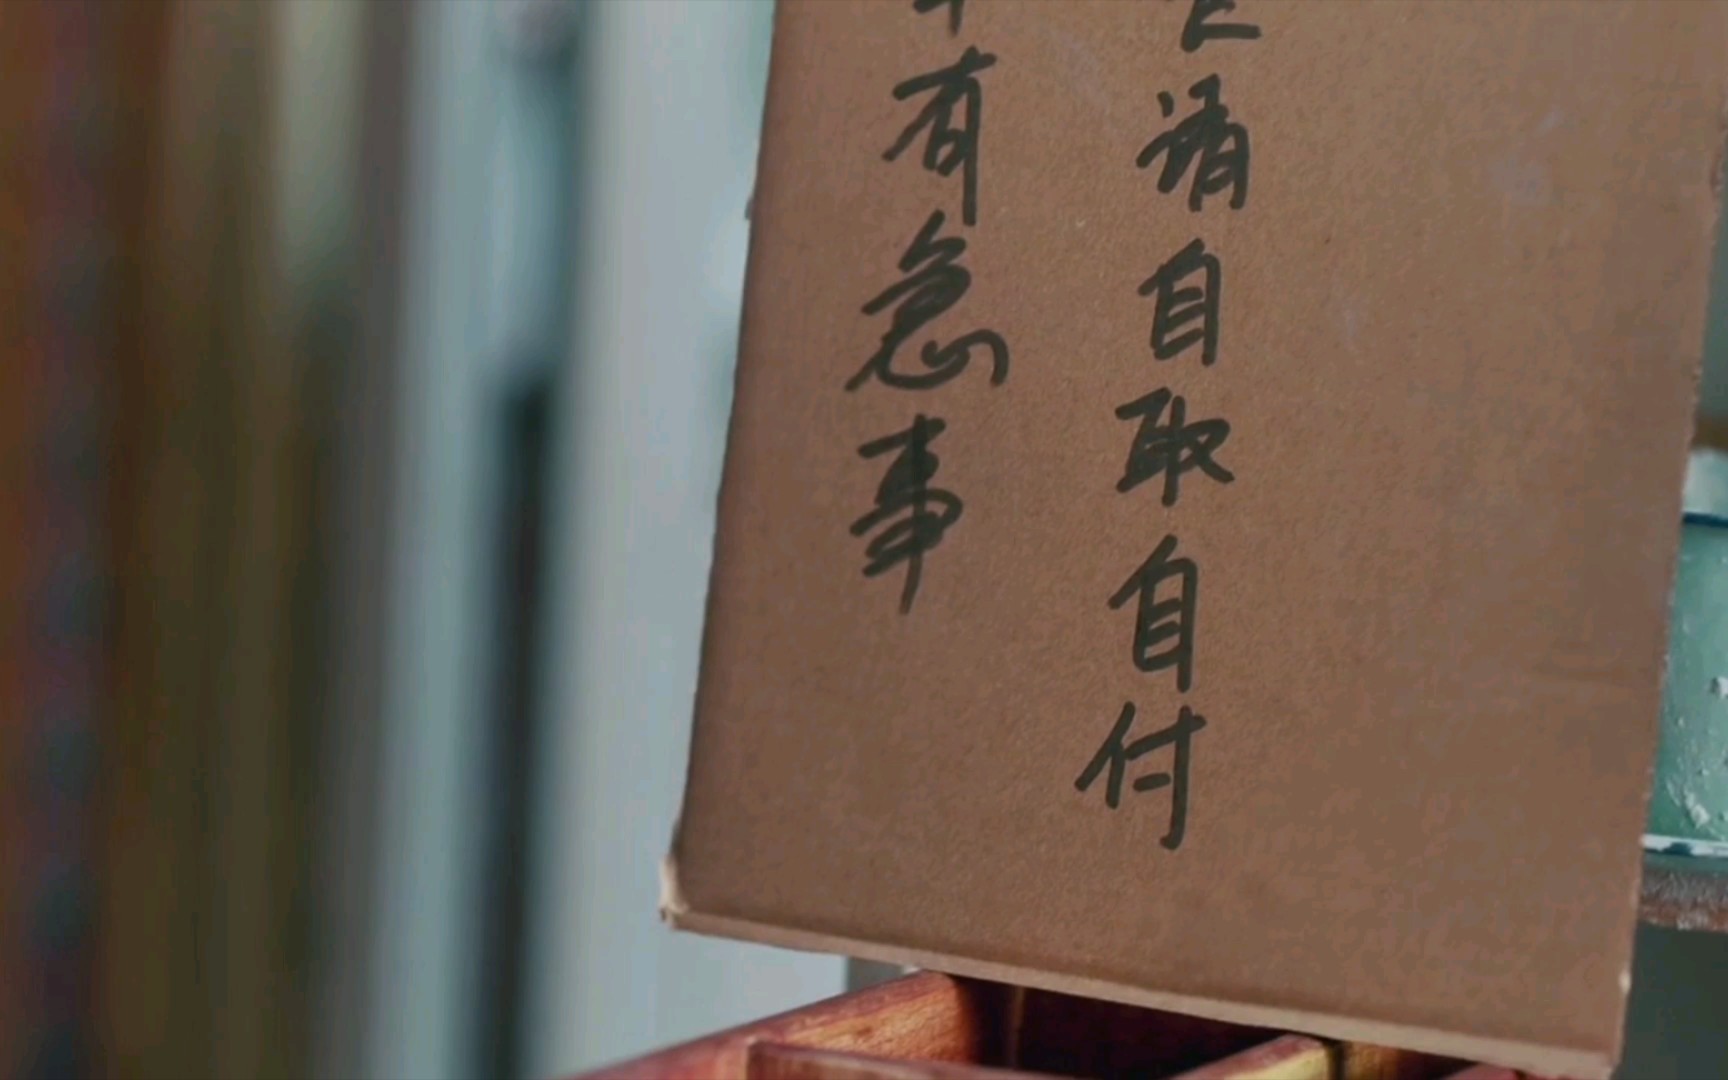 请自取自付
有急事